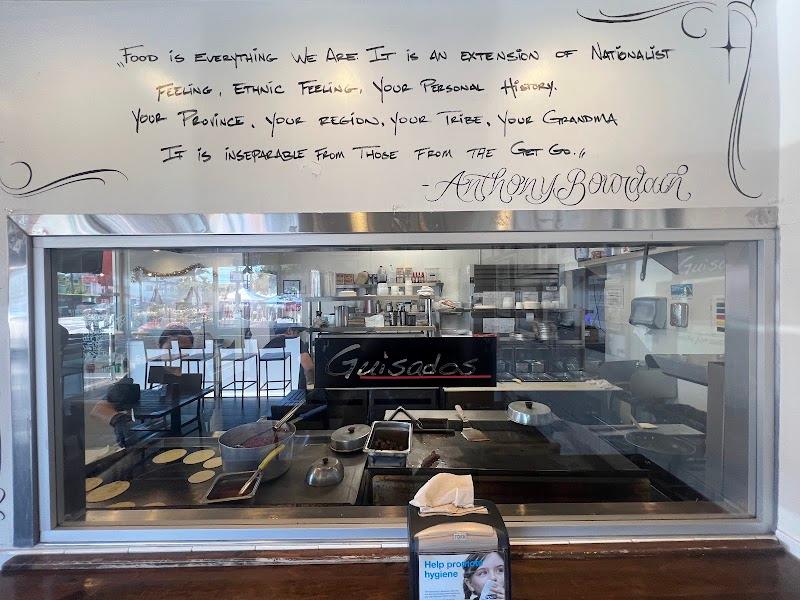 „Food is everything we are. It is an extension of Nationalist
feeling, Ethnic Feeling, Your Personal History.
Your Province, your region, your Tribe, your Grandma
It is inseparable from those from the Get Go.„
-Anthony Bourdain
Guisados
Help promote
hygiene